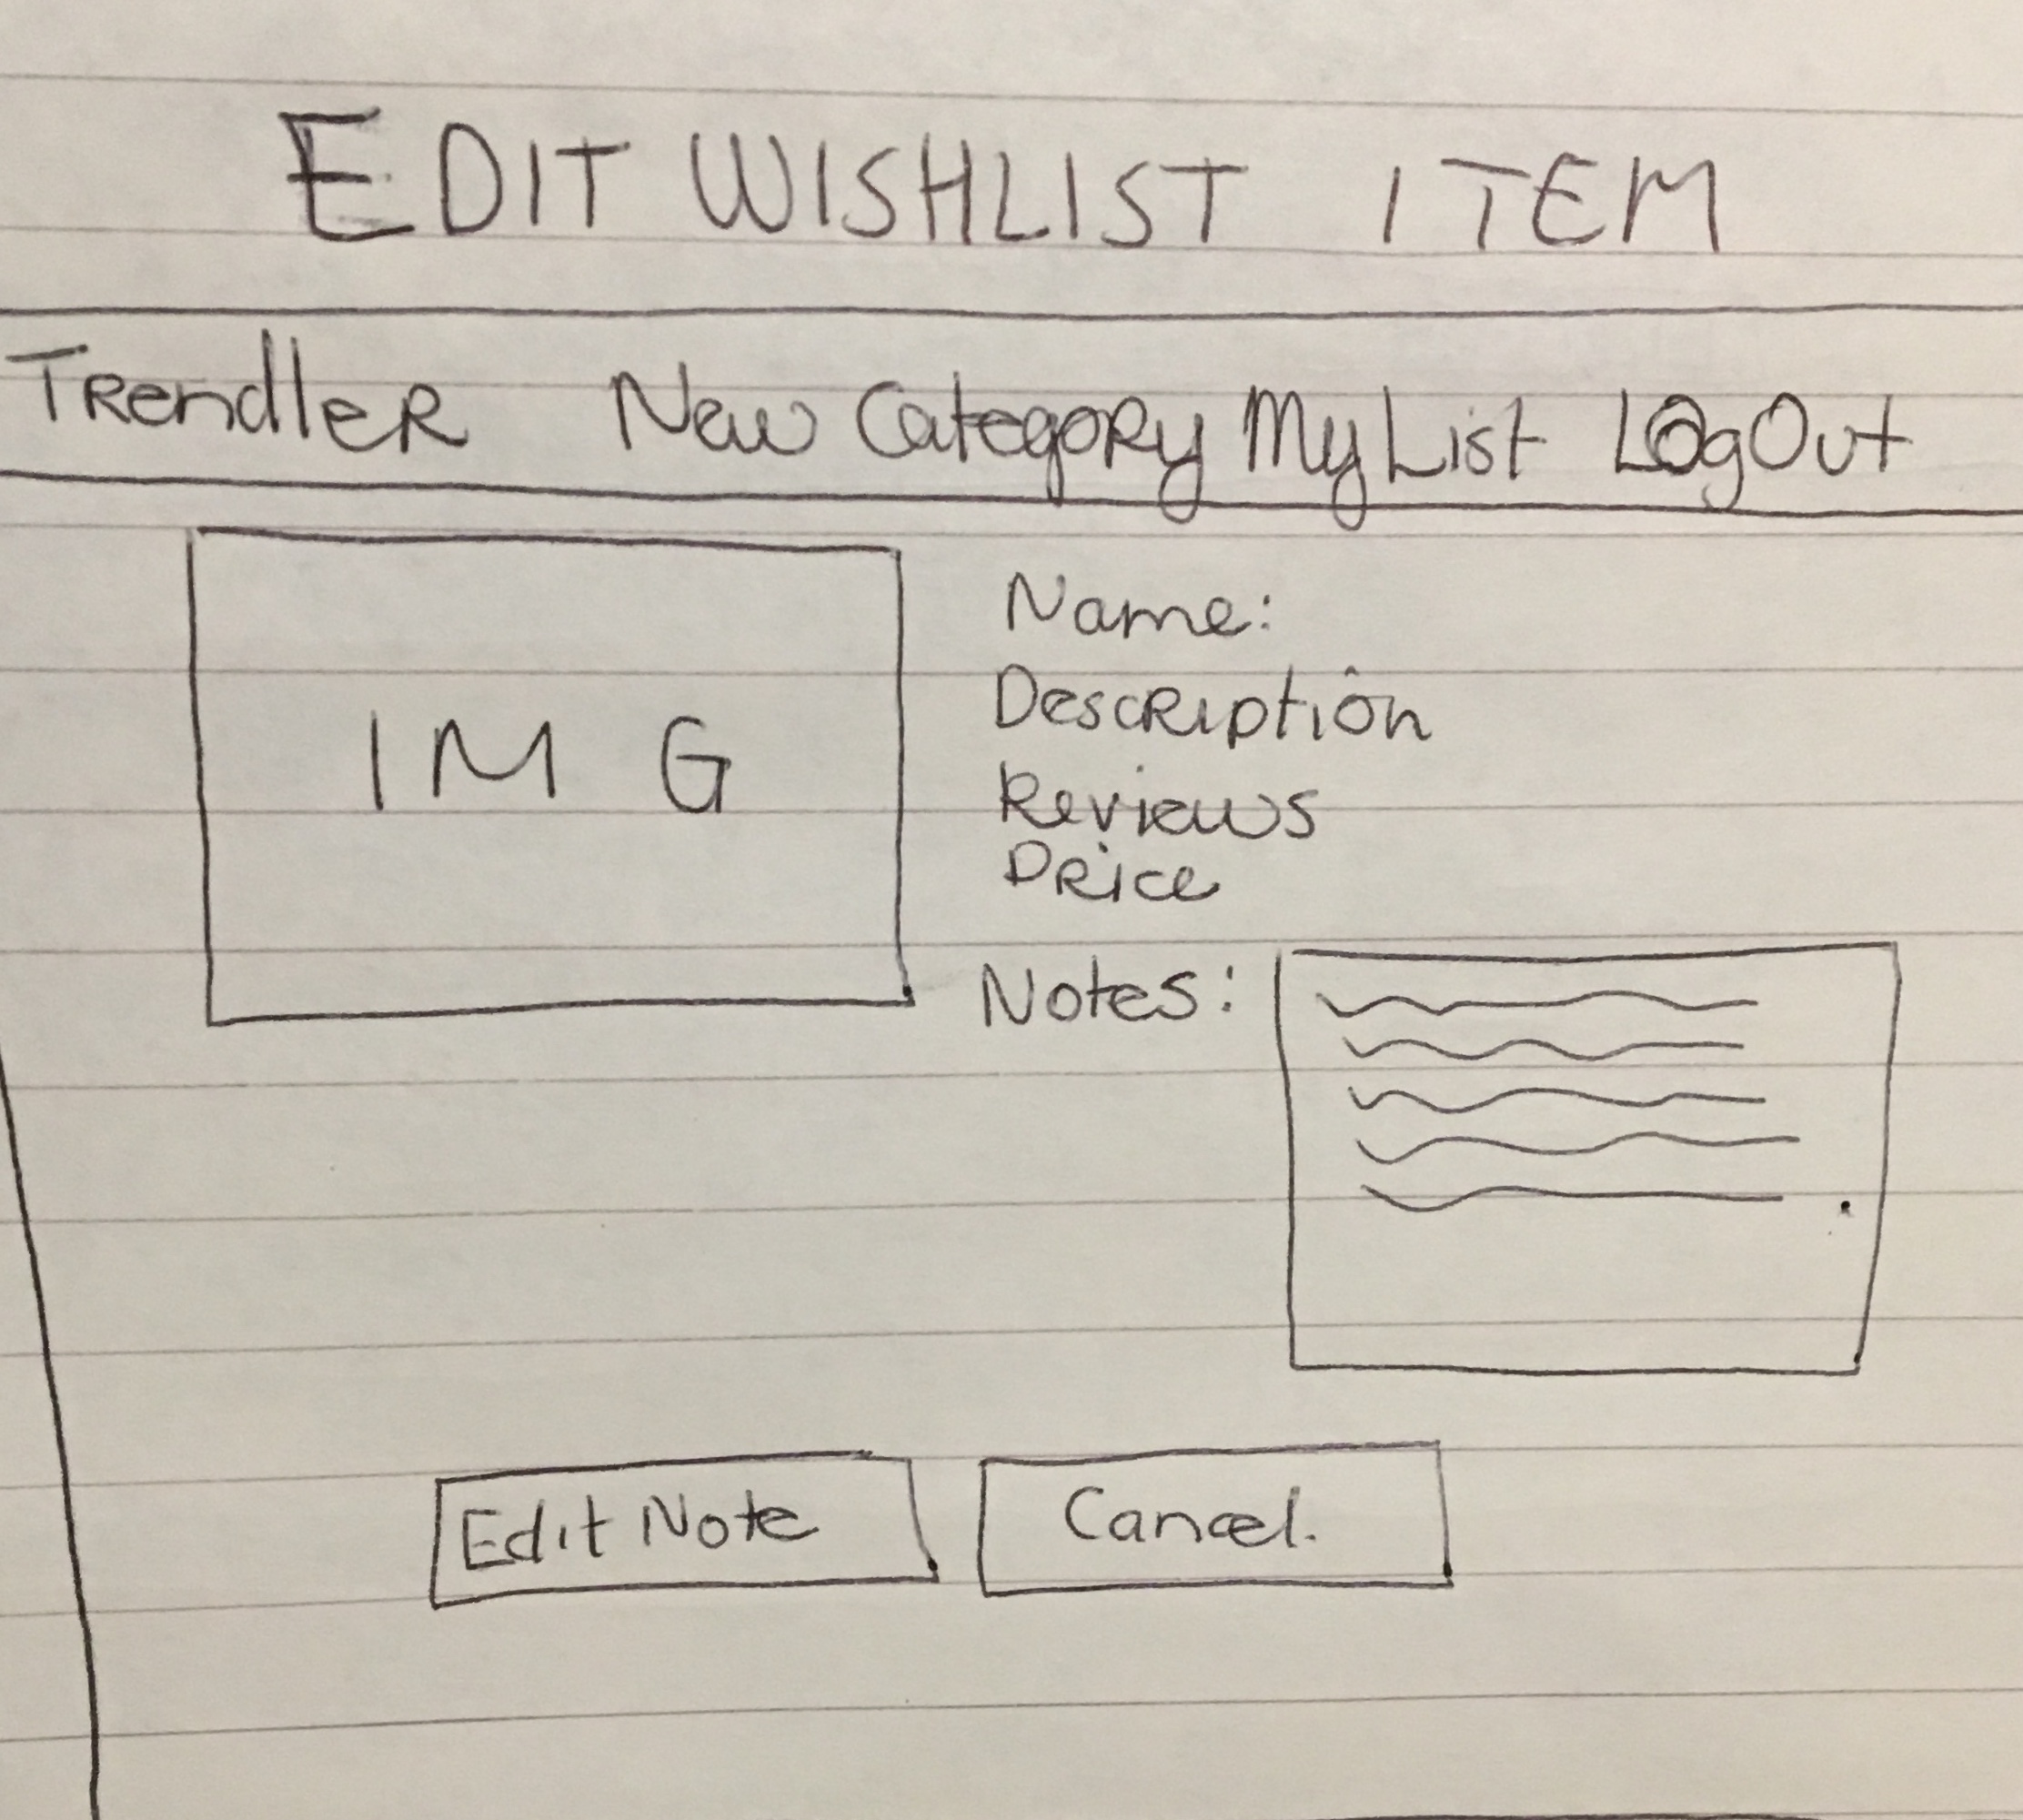 EDIT WISHLIST ITEM
Trendler New Category My List LogOut
IMG
Name:
Description
Reviews
Price
Notes:
Edit Note
Cancel.